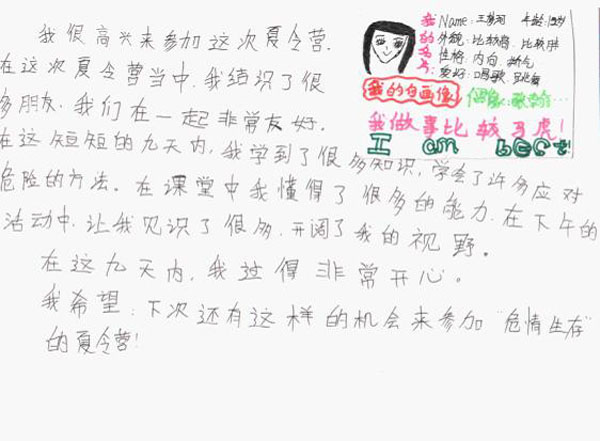 我很高兴来参加这次夏令营.
在这次夏令营当中,我结识了很
多朋友,我们在一起非常友好.
在这短短的九天内,我学到了很多知识,学会了许多应对
危险的方法。在课堂中我懂得了很多的能力.在下午的
活动中,让我见识了很多,开阔了我的视野。
在这九天内,我过得非常开心。
我希望:下次还有这样的机会来参加"危情生存"
的夏令营!
我的名片:
Name: 王梦河 年龄:
外貌:比较高.比较胖
性格:内向.娇气
爱好:唱歌.
我的自画像
偶像:
我做事比较马虎!
I am best!